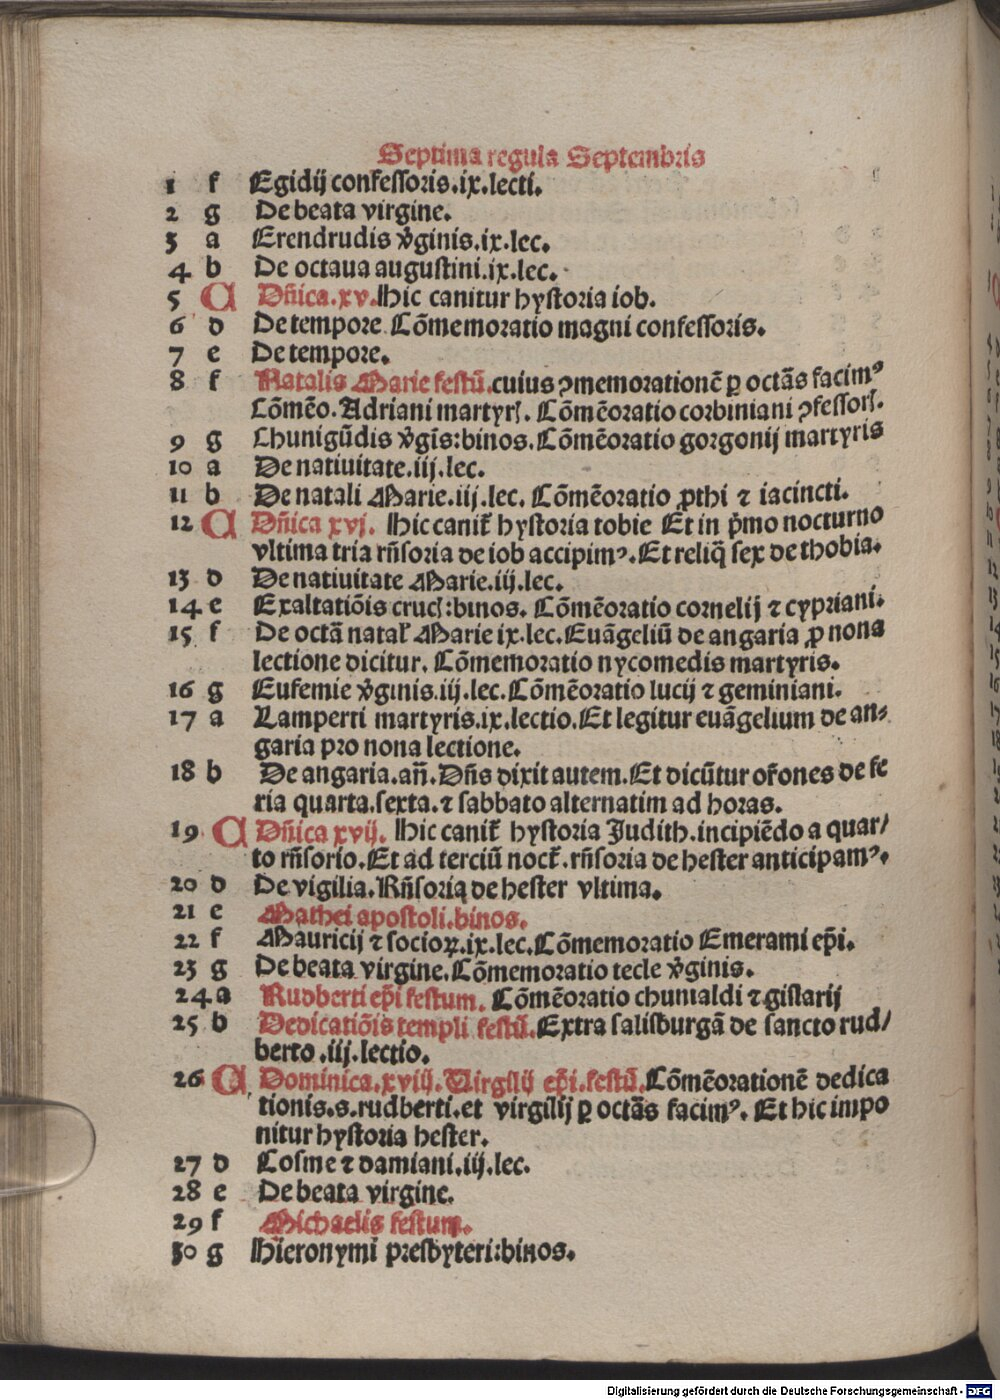 Septima regula Septembris
1 f Egidij confessoris.ix.lecti.
2 g De beata virgine.
3 a Erendrudis v̓ginis.ix.lec.
4 b De octaua augustini.ix.lec.
5 A Dn̄ica.xv. Hic canitur hystoria iob.
6 d De tempore Cōmemoratio magni confessoris.
7 e De tempore.
8 f Natalis Marie festū.cuius ꝯmemorationē ꝑ octās facimꝰ
Cōmēo. Adriani martyrꝭ. Cōmēoratio corbiniani ꝯfessorꝭ.
9 g Chunigūdis v̓gīs:binos. Cōmēoratio gorgonij martyris
10 a De natiuitate.iij.lec.
11 b De natali Marie.iij.lec. Cōmēoratio ꝓthi ⁊ iacincti.
12 A Dn̄ica xvj. Hic canit̄ hystoria tobie Et in p̓mo nocturno
vltima tria rn̄soria de iob accipimꝰ. Et reliq̄ sex de thobia.
13 d De natiuitate Marie.iij.lec.
14 e Exaltatiōis crucꝭ:binos. Cōmēoratio cornelij ⁊ cypriani.
15 f De octā natał Marie ix.lec. Euāgeliū de angaria ꝓ nona
lectione dicitur. Cōmemoratio nycomedis martyris.
16 g Eufemie v̓ginis.iij.lec. Cōmēoratio lucij ⁊ geminiani.
17 a Lamperti martyris.ix.lectio. Et legitur euāgelium de an-
garia pro nona lectione.
18 b De angaria.an̄. Dn̄s dixit autem. Et dicūtur or̄ones de fe
ria quarta.sexta.⁊ sabbato alternatim ad horas.
19 A Dn̄ica xvij. Hic canit̄ hystoria Judith.incipiēdo a quar/
to rn̄sorio. Et ad terciū noct̄.rn̄soria de hester anticipamꝰ.
20 d De vigilia. Rn̄soriaq de hester vltima.
21 e Mathei apostoli.binos.
22 f Mauricij ⁊ socioꝝ.ix.lec. Cōmemoratio Emerami ep̄i.
23 g De beata virgine. Cōmemoratio tecle v̓ginis.
24 a Rudberti ep̄i festum. Cōmēoratio chunialdi ⁊ gislarij
25 b Dedicatiōis templi festū. Extra salisburgā de sancto rud/
berto.iij.lectio.
26 A Dominica.xviij. Virgilij ep̄i.festū. Cōmēorationē dedica
tionis.s.rudberti.et virgilij ꝑ octās facimꝰ. Et hic impo
nitur hystoria hester.
27 d Cosme ⁊ damiani.iij.lec.
28 e De beata virgine.
29 f Michaelis festum.
30 g Hieronymi presbyteri:binos.
Digitalisierung gefördert durch die Deutsche Forschungsgemeinschaft - DFG